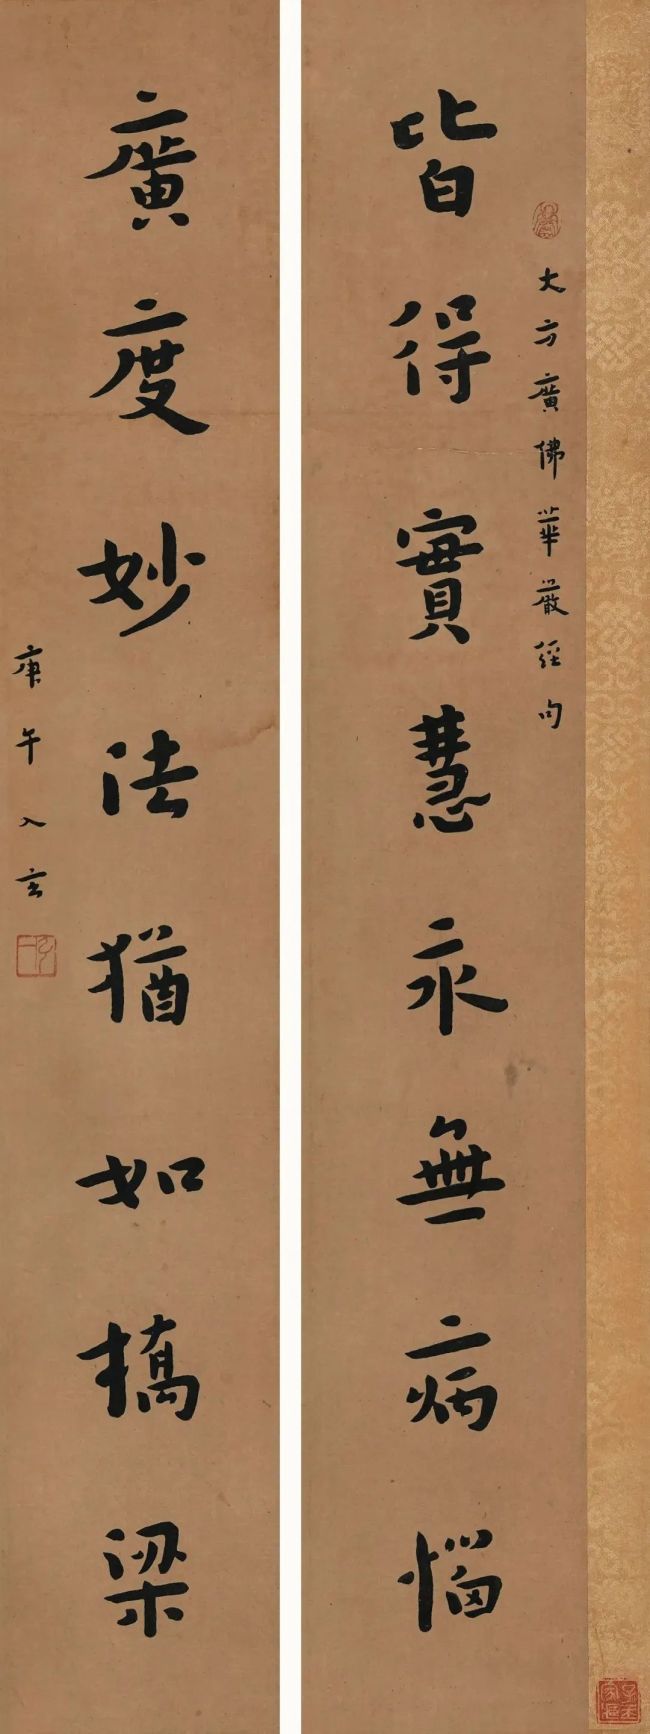 大方廣佛華嚴經句
皆得寳慧永無病惱
廣度妙法猶如橋梁
庚午入玄